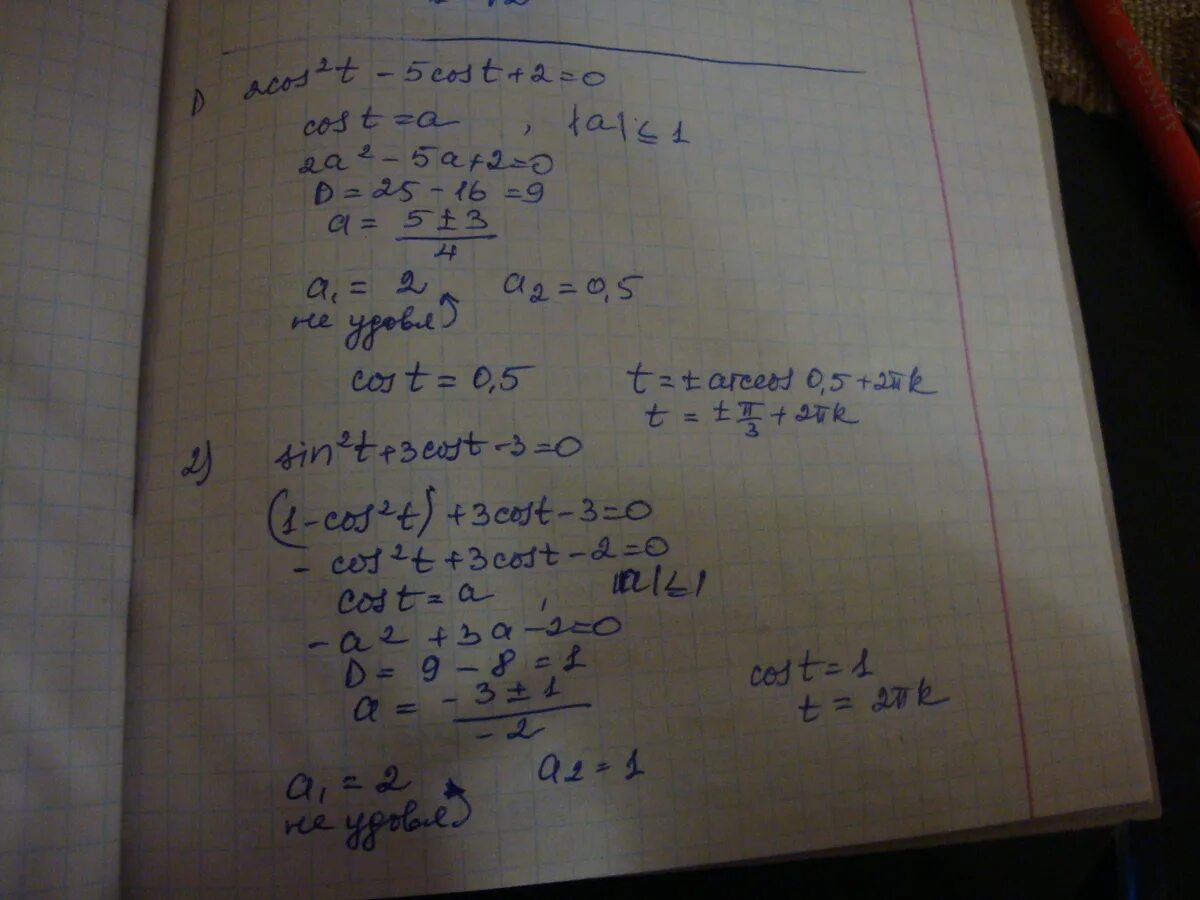 1) 2cos²t - 5cost + 2 = 0
cos t = a , |a| ≤ 1
2a² - 5a + 2 = 0
D = 25 - 16 = 9
a = (5 ± 3)/4
a₁ = 2 a₂ = 0,5
не удовл
cos t = 0,5 t = ± arccos 0,5 + 2πk
t = ± π/3 + 2πk
2) sin²t + 3cost - 3 = 0
(1 - cos²t) + 3cost - 3 = 0
- cos²t + 3cost - 2 = 0
cos t = a , |a| ≤ 1
- a² + 3a - 2 = 0
D = 9 - 8 = 1
a = (- 3 ± 1)/(- 2)
cos t = 1
t = 2πk
a₁ = 2 a₂ = 1
не удовл